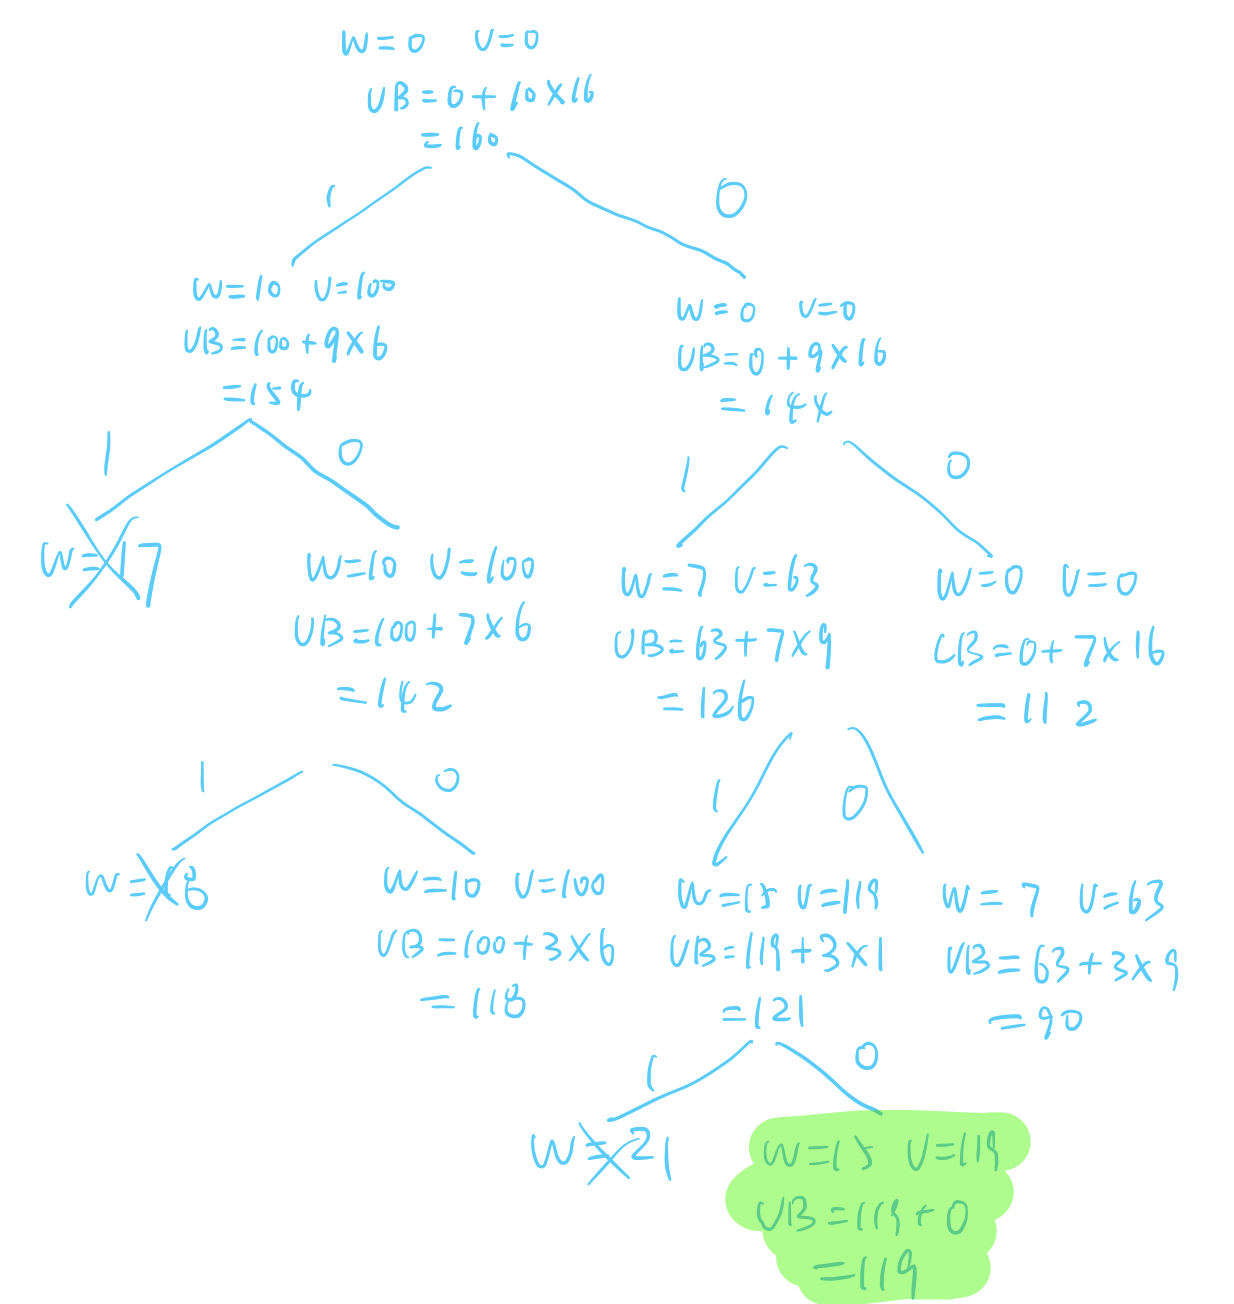 W=0 V=0
UB=0+10×16
=160
1
0
W=10 V=100
UB=100+9×6
=154
W=0 V=0
UB=0+9×16
=144
1
0
1
0
W=17
W=10 V=100
UB=100+7×6
=142
W=7 V=63
UB=63+7×9
=126
W=0 V=0
CB=0+7×16
=112
1
0
1
0
W=18
W=10 V=100
UB=100+3×6
=118
W=15 V=119
UB=119+3×1
=121
W=7 V=63
UB=63+3×9
=90
1
0
W=21
W=15 V=119
UB=119+0
=119